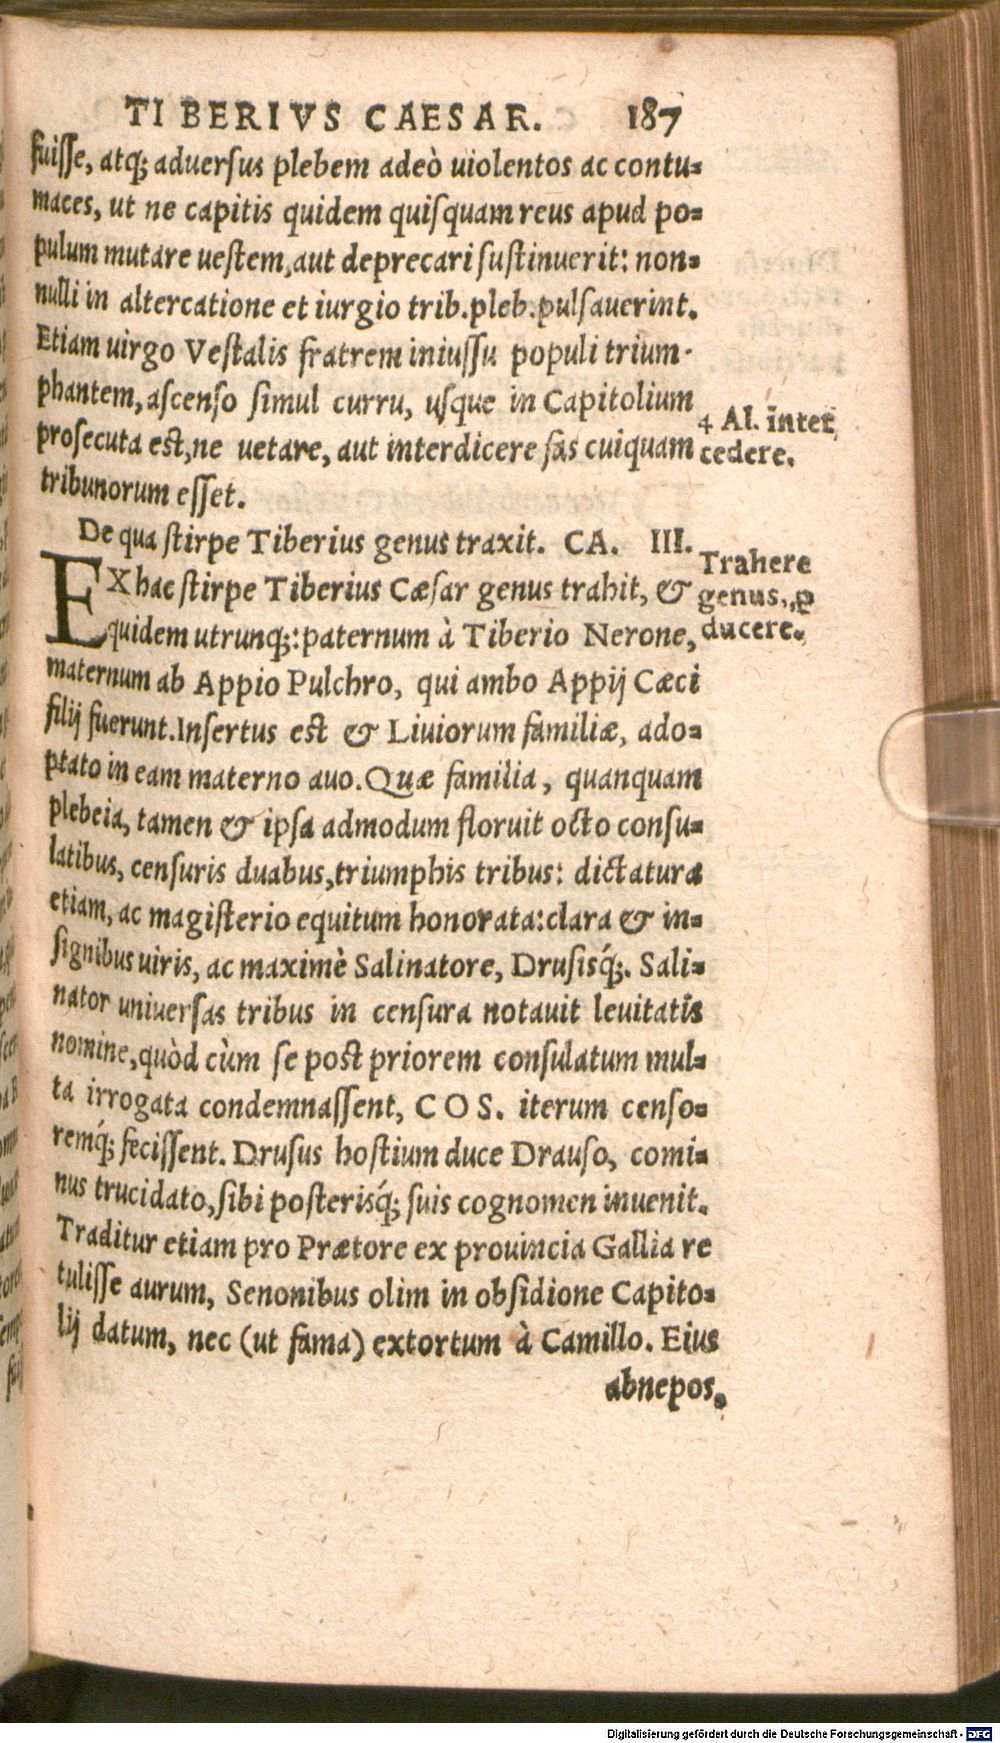 TIBERIVS CAESAR. 187
fuisse, atq; aduersus plebem adeò uiolentos ac contu-
maces, ut ne capitis quidem quisquam reus apud po-
pulum mutare uestem, aut deprecari sustinuerit: non-
nulli in altercatione et iurgio trib. pleb. pulsauerint.
Etiam uirgo Vestalis fratrem iniussu populi trium-
phantem, ascenso simul curru, usque in Capitolium
prosecuta est, ne uetare, aut interdicere fas cuiquam
tribunorum esset.
4 Al. inter
cedere.
De qua stirpe Tiberius genus traxit. CA. III.
EX hac stirpe Tiberius Cæsar genus trahit, &
equidem utrunq;: paternum à Tiberio Nerone,
maternum ab Appio Pulchro, qui ambo Appij Cæci
filij fuerunt. Insertus est & Liuiorum familiæ, ado-
ptato in eam materno auo. Quæ familia, quanquam
plebeia, tamen & ipsa admodum floruit octo consu-
latibus, censuris duabus, triumphis tribus: dictatura
etiam, ac magisterio equitum honorata: clara & in-
signibus uiris, ac maximè Salinatore, Drusisq́;. Sali-
nator uniuersas tribus in censura notauit leuitatis
nomine, quòd cùm se post priorem consulatum mul-
ta irrogata condemnassent, COS. iterum censo-
remq́; fecissent. Drusus hostium duce Drauso, comi-
nus trucidato, sibi posterisq́; suis cognomen inuenit.
Traditur etiam pro Prætore ex prouincia Gallia re
tulisse aurum, Senonibus olim in obsidione Capito-
lij datum, nec (ut fama) extortum à Camillo. Eius
abnepos.
Trahere
genus, ꝓ
ducere.
Digitalisierung gefördert durch die Deutsche Forschungsgemeinschaft - DFG